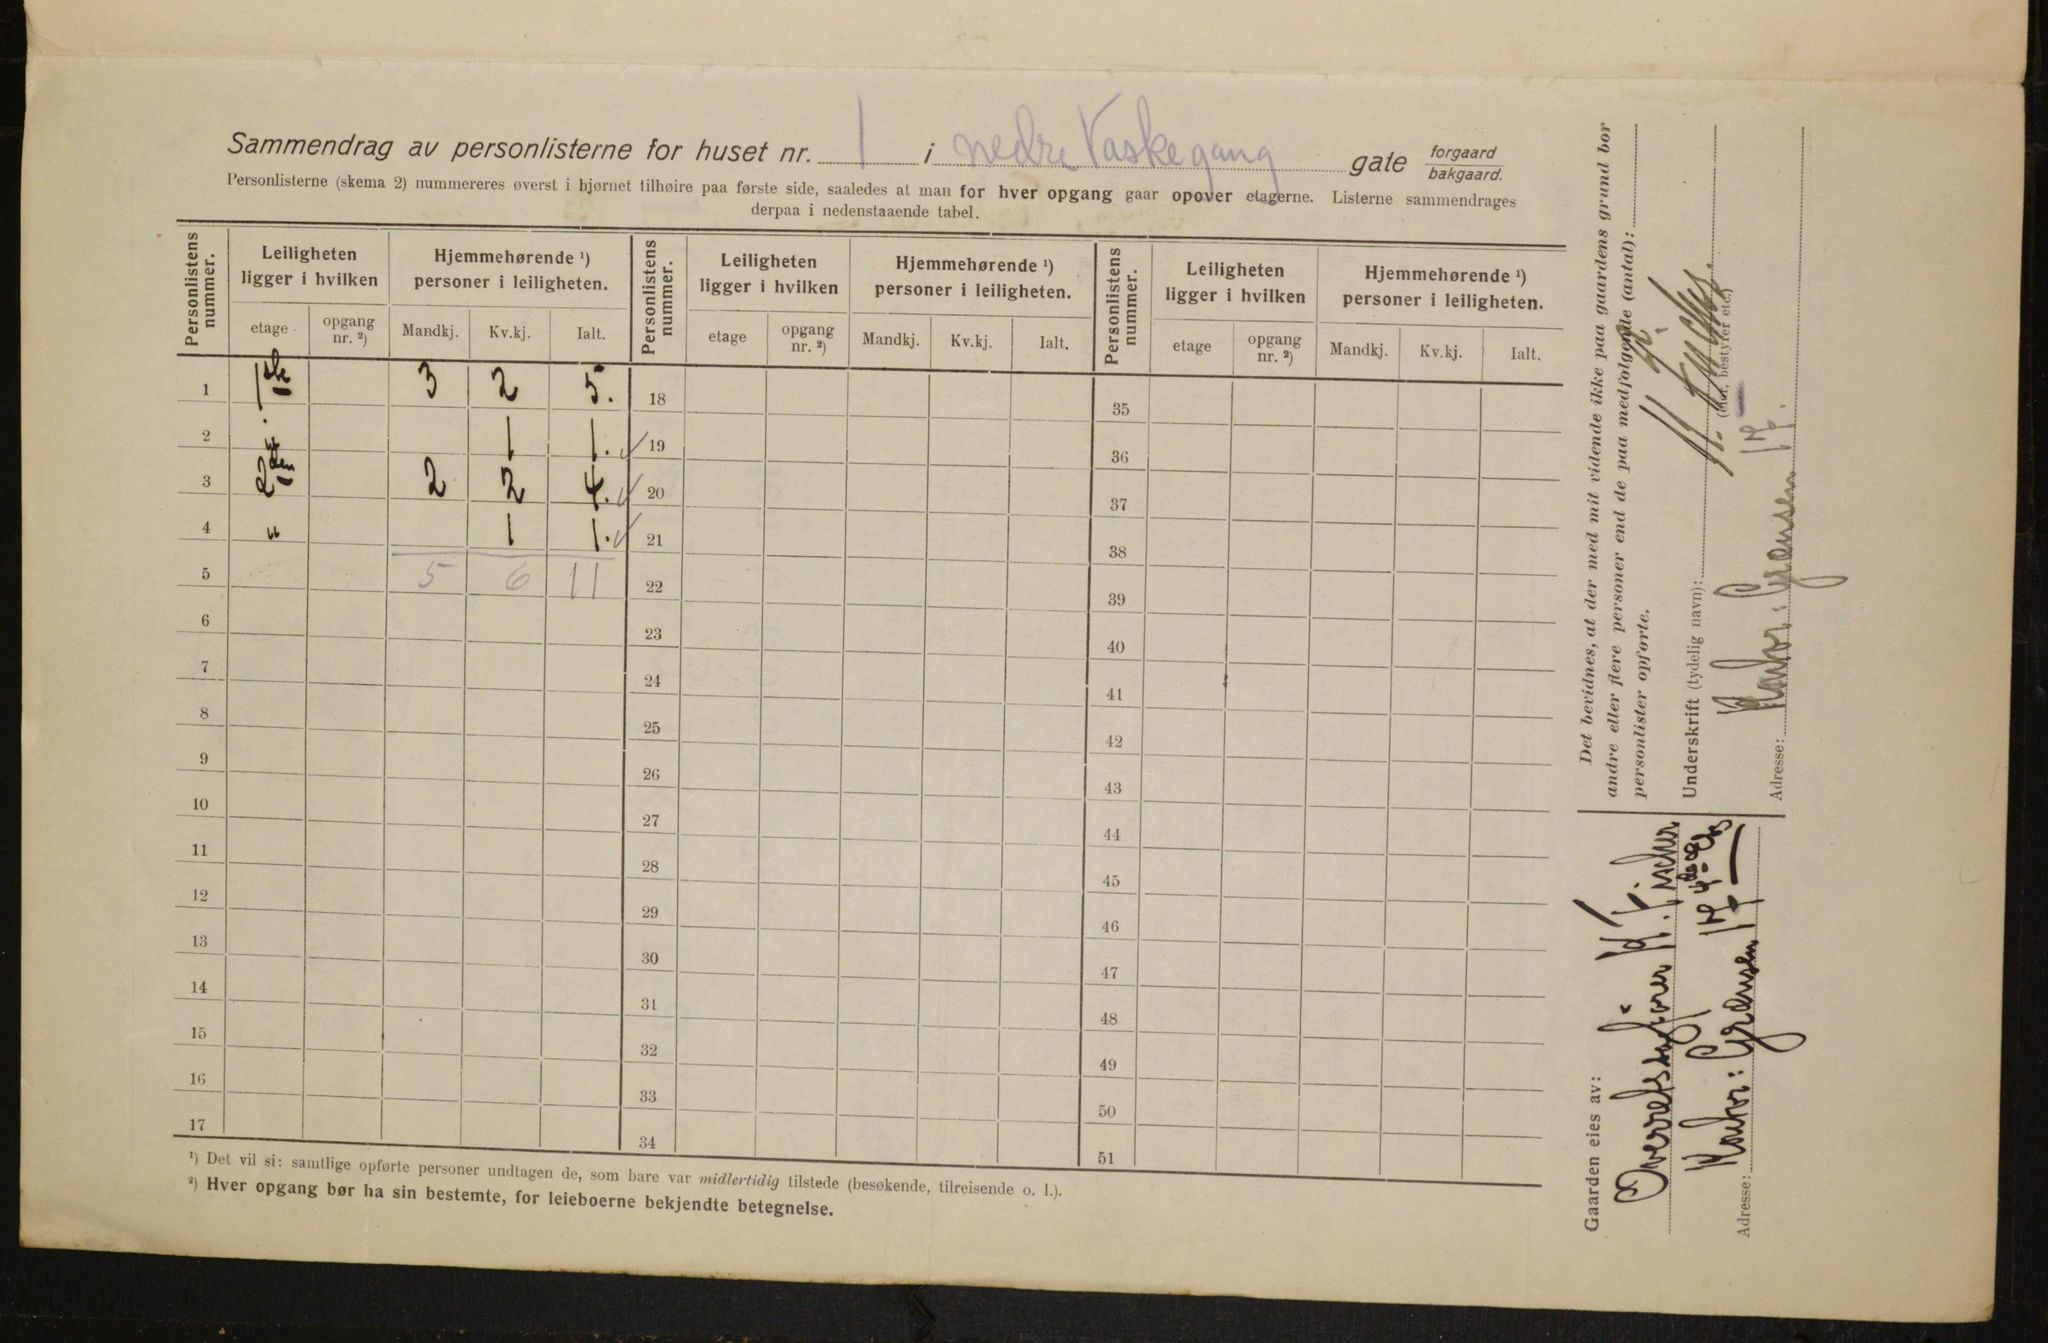 Sammendrag av personlisterne for huset nr. 1 i nedre Vaskegang gate forgaard
bakgaard.
Personlisterne (skema 2) nummereres øverst i hjørnet tilhøire paa første side, saaledes at man for hver opgang gaar opover etagerne. Listerne sammendrages
derpaa i nedenstaaende tabel.
Personlistens nummer. Leiligheten ligger i hvilken Hjemmehørende ¹) personer i leiligheten. Personlistens nummer. Leiligheten ligger i hvilken Hjemmehørende ¹) personer i leiligheten. Personlistens nummer. Leiligheten ligger i hvilken Hjemmehørende ¹) personer i leiligheten.
etage opgang nr. ²) Mandkj. Kv.kj. Ialt. etage opgang nr. ²) Mandkj. Kv.kj. Ialt. etage opgang nr. ²) Mandkj. Kv.kj. Ialt.
1 1ste 3 2 5. 18 35
2 " 1 1. 19 36
3 2den 2 2 4. 20 37
4 " 1 1. 21 38
5 5 6 11 22 39
6 23 40
7 24 41
8 25 42
9 26 43
10 27 44
11 28 45
12 29 46
13 30 47
14 31 48
15 32 49
16 33 50
17 34 51
¹) Det vil si: samtlige opførte personer undtagen de, som bare var midlertidig tilstede (besøkende, tilreisende o. l.).
²) Hver opgang bør ha sin bestemte, for leieboerne bekjendte betegnelse.
Det bevidnes, at der med mit vidende ikke paa gaardens grund bor
andre eller flere personer end de paa medfølgende (antal):
personlister opførte.
Underskrift (tydelig navn):
(eier, bestyrer etc.)
Adresse: Kontor: Grensen 17.
Gaarden eies av:
Overretssakfører
Adresse: Kontor: Grensen 17